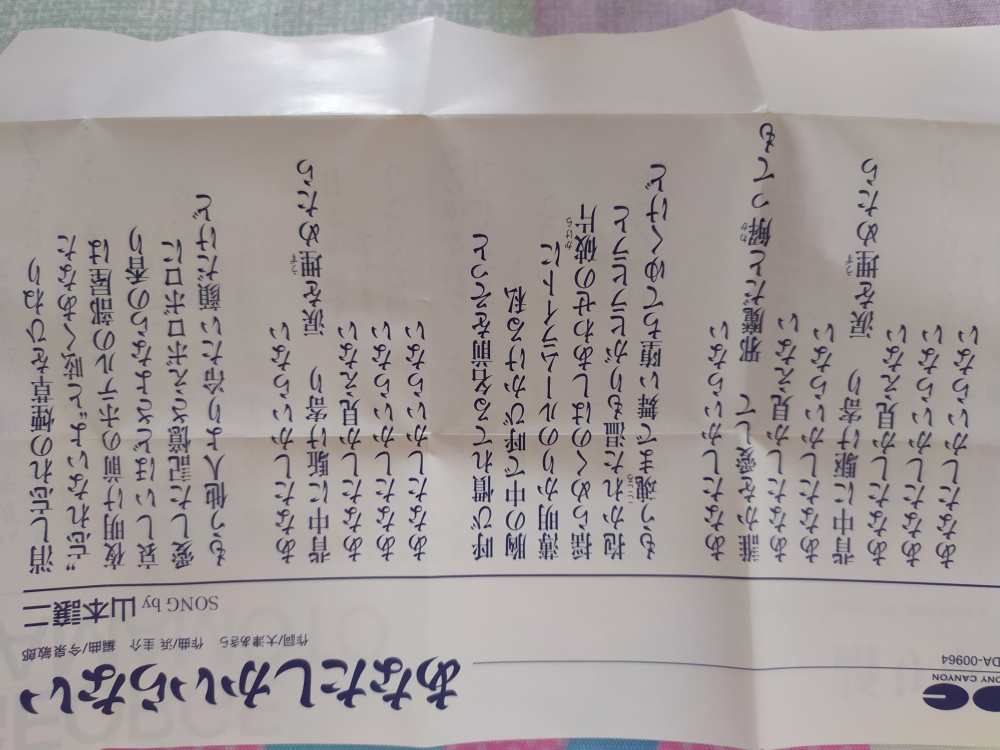 ONY CANYON
DA-00964
あなたしかいらない
作詞/大津あきら 作曲/浜 圭介 編曲/今泉敏郎
SONG by 山本譲二
消し忘れの煙草をひねり
〝忘れないよ〟と呟くあなた
夜明け前のホテルの部屋は
哀しいほどさよならの香り
愛した記憶さえボロボロに
もう他人より冷たい顔だけど
あなたしかいらない
背中に駈け寄り 涙を埋めたら
うず
あなたしか見えない
あなたしかいらない
あなたしかいらない
呼び慣れてる名前をそっと
胸の中で呼びかける私
薄明かりのルームライトに
揺らめくのはしあわせの破片
かけら
抱かれた温もりがヒラヒラと
もう魂まで舞い堕ちてゆくけど
こころ
あなたしかいらない
誰かを愛して 邪魔だと解っても
わか
あなたしか見えない
あなたしかいらない
背中に駆け寄り 涙を埋めたら
うず
あなたしか見えない
あなたしかいらない
あなたしかいらない